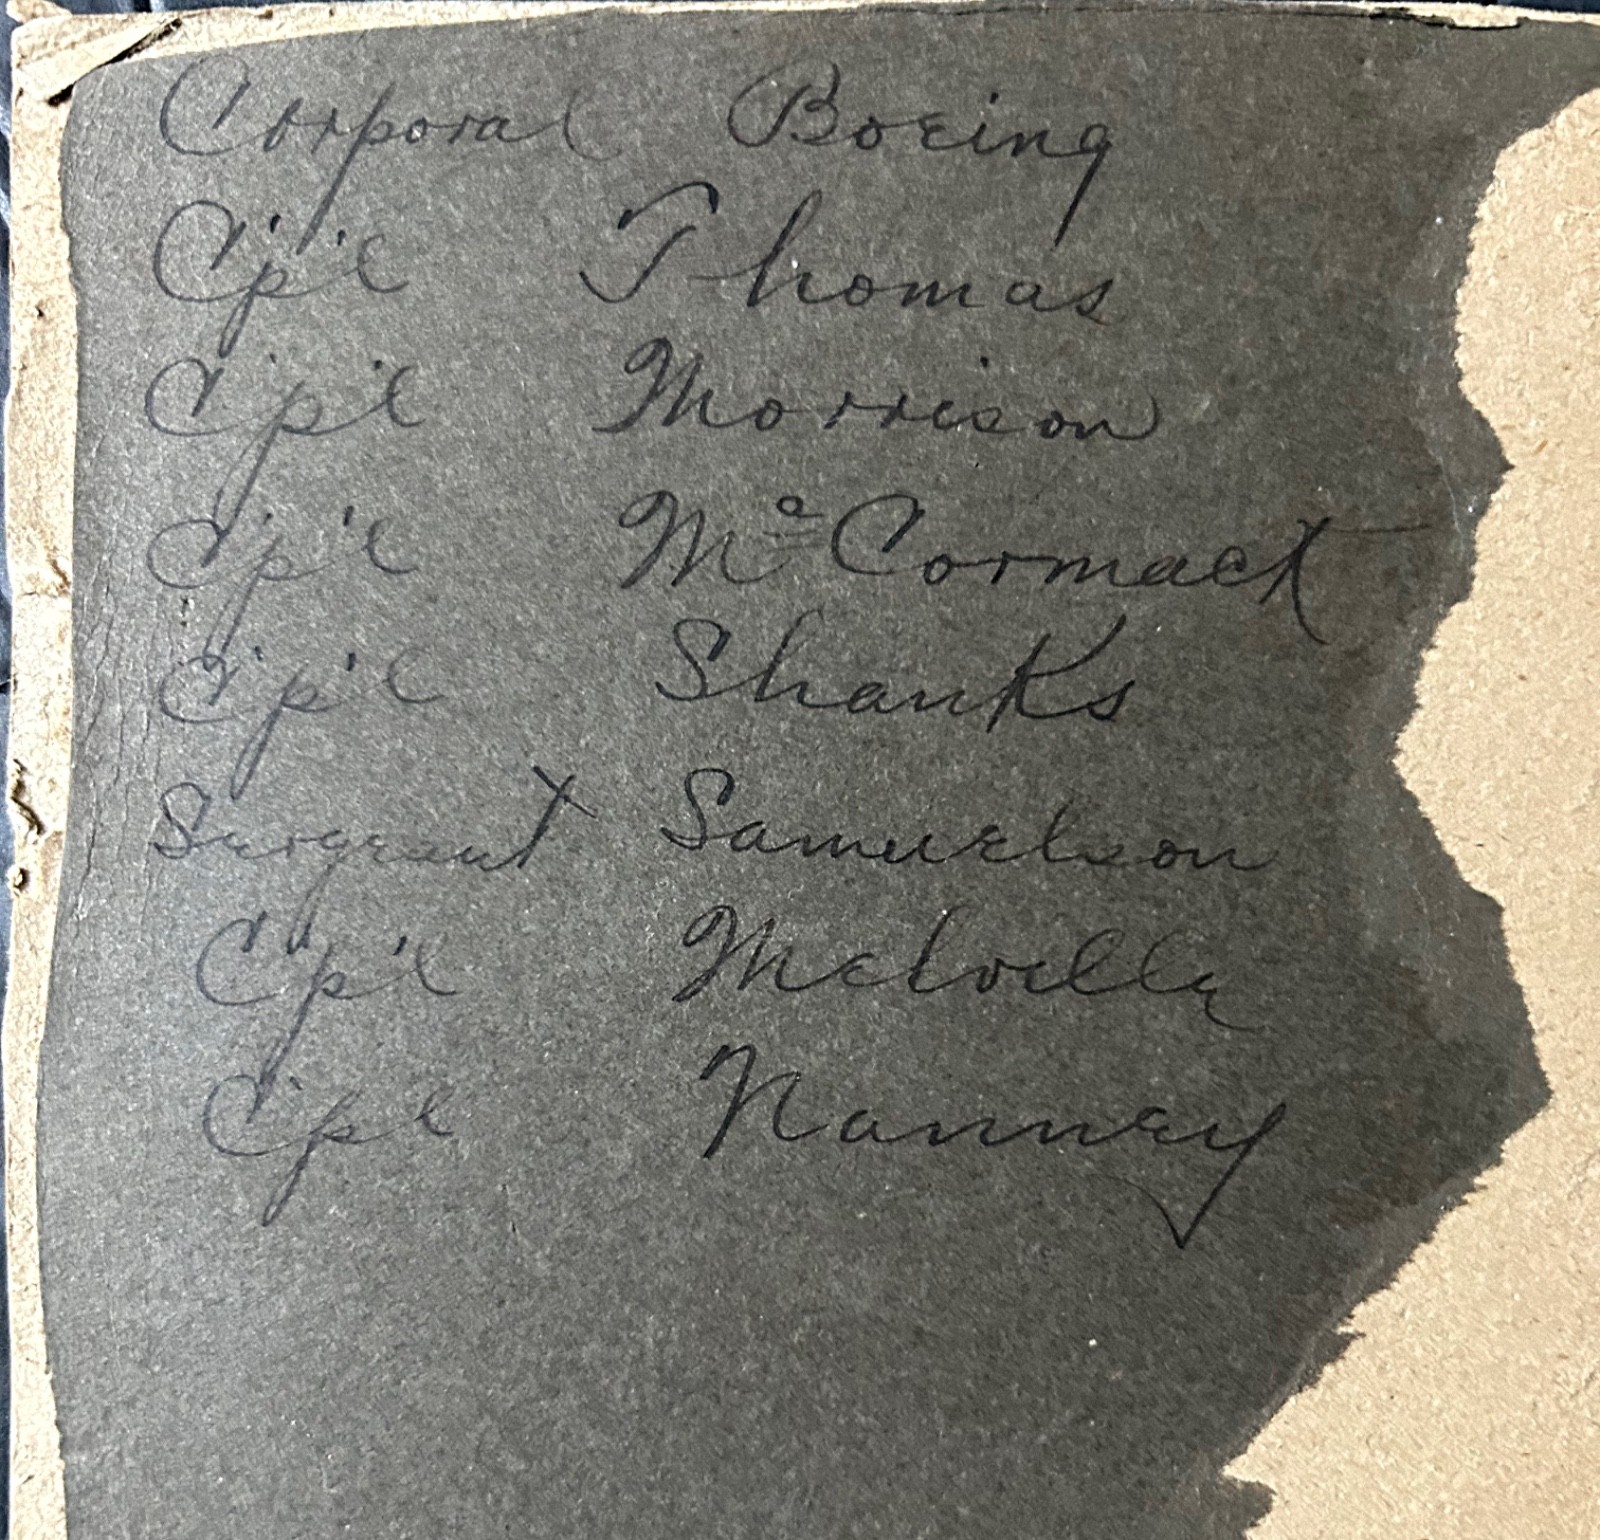 Corporal Boeing
C'p'l Thomas
C'p'l Morrison
C'p'l McCormack
C'p'l Shanks
Sergeant Samuelson
C'p'l Melville
C'p'l Nanney